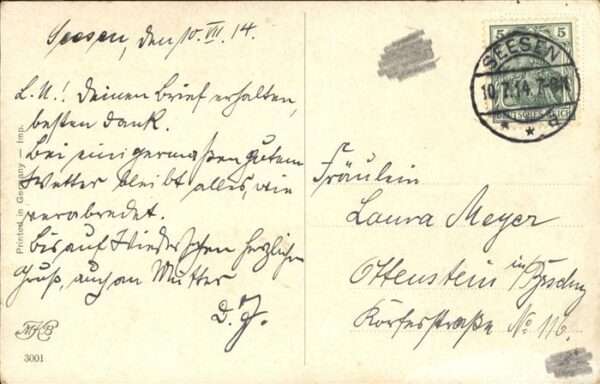 Seesen, den 10. VII. 14.
L. U.! Deinen Brief erhalten,
besten Dank.
Bei einigermaßen gutem
Wetter bleibt alles, wie
verabredet.
Bis auf Wiedersehen herzlichen
Gruß, auch an Mutter
D. J.
Printed in Germany — Imp.
M&B
3001
5 5
DEUTSCHES REICH
SEESEN
10.7.14. 7-8N
* * a
Fräulein
Laura Meyer
Ottenstein in
Korfesstraße No 116.